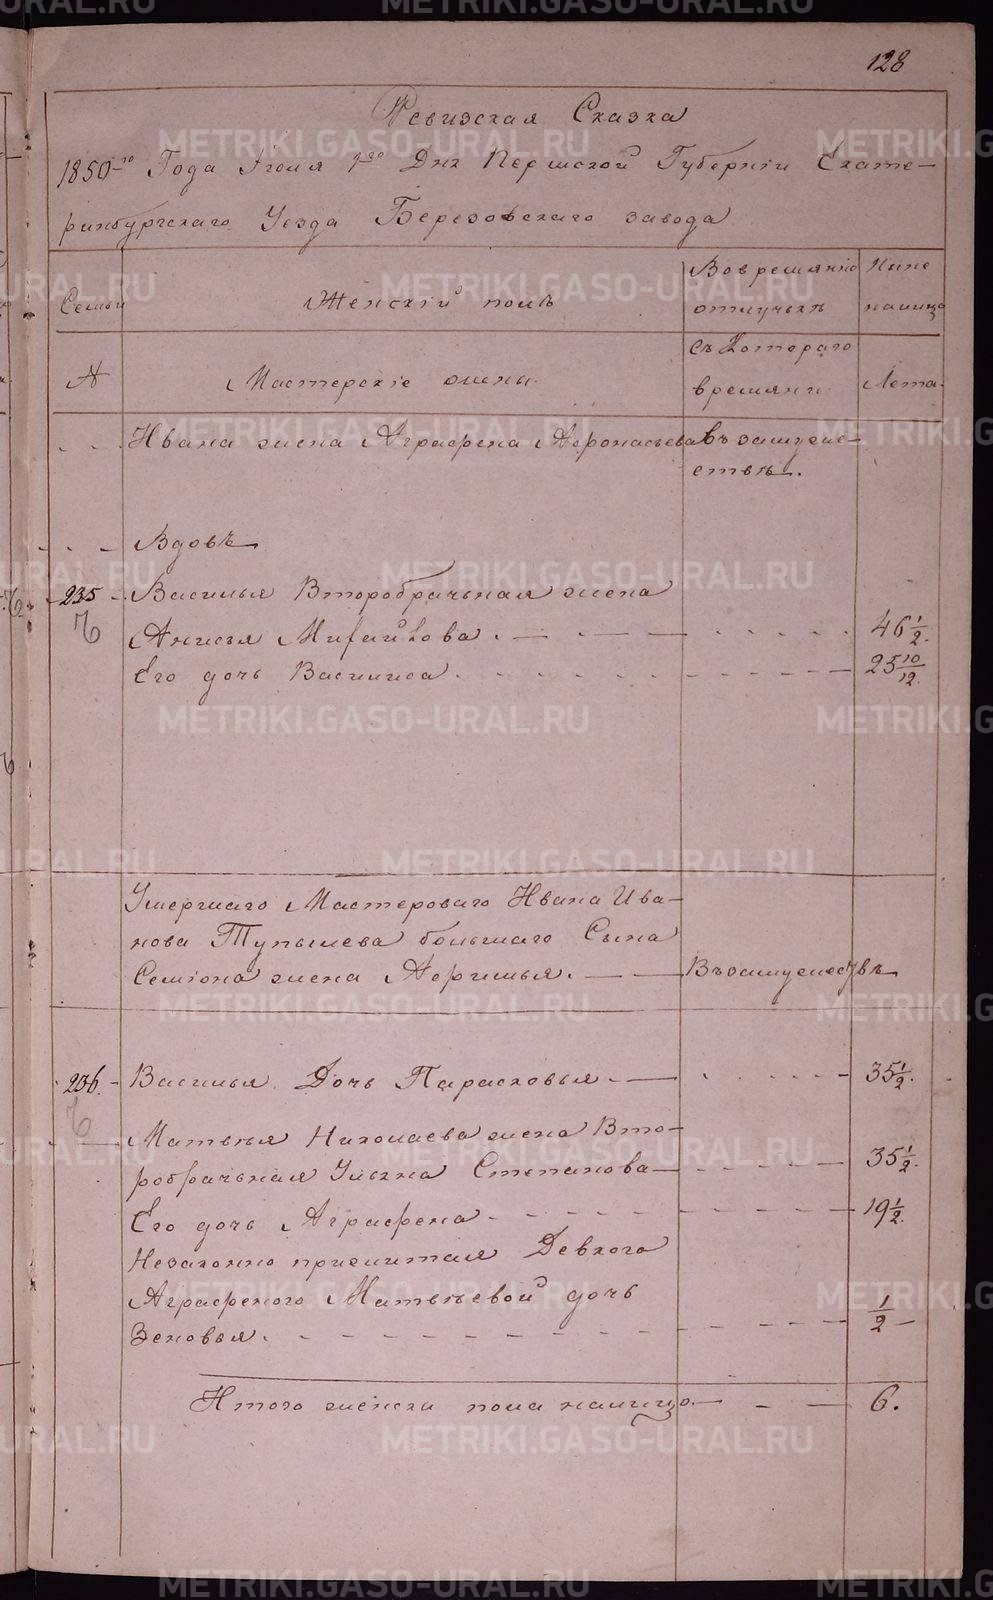 128
Ревизская Сказка
1850го Года Iюля 1го Дня Пермской Губернiи Екате-
ринбургскаго Уезда Березовскаго завода
Семьи
Женскiй полъ
Вовремянно
отлучкѣ
Ныне
налицо
№
Мастерскiе жоны.
съ Котораго
времяни
Лета.
Ивана жена Аграфена Афонасьева Въ замуже-
ствѣ.
Вдовъ
235
Василья Второбрачьная жена
Анисья Михайлова. 46 1/2.
Его дочь Васили́са. 25 10/12.
Умершаго Мастероваго Ивана Ива-
нова Тупылева большаго Сына
Семiона жена Афимья. Въ замужествѣ
236.
Василья Дочь Парасковья. 35 1/2.
Матвѣя Николаева жена Вто-
робрачьная Ульяна Степанова 35 1/2.
Его дочь Аграфена 19 1/2.
Незаконно прижитая Девкою
Аграфеною Матвѣевой дочь
Зеновья. 1/2
Итого женска пола налицо 6.
METRIKI.GASO-URAL.RU